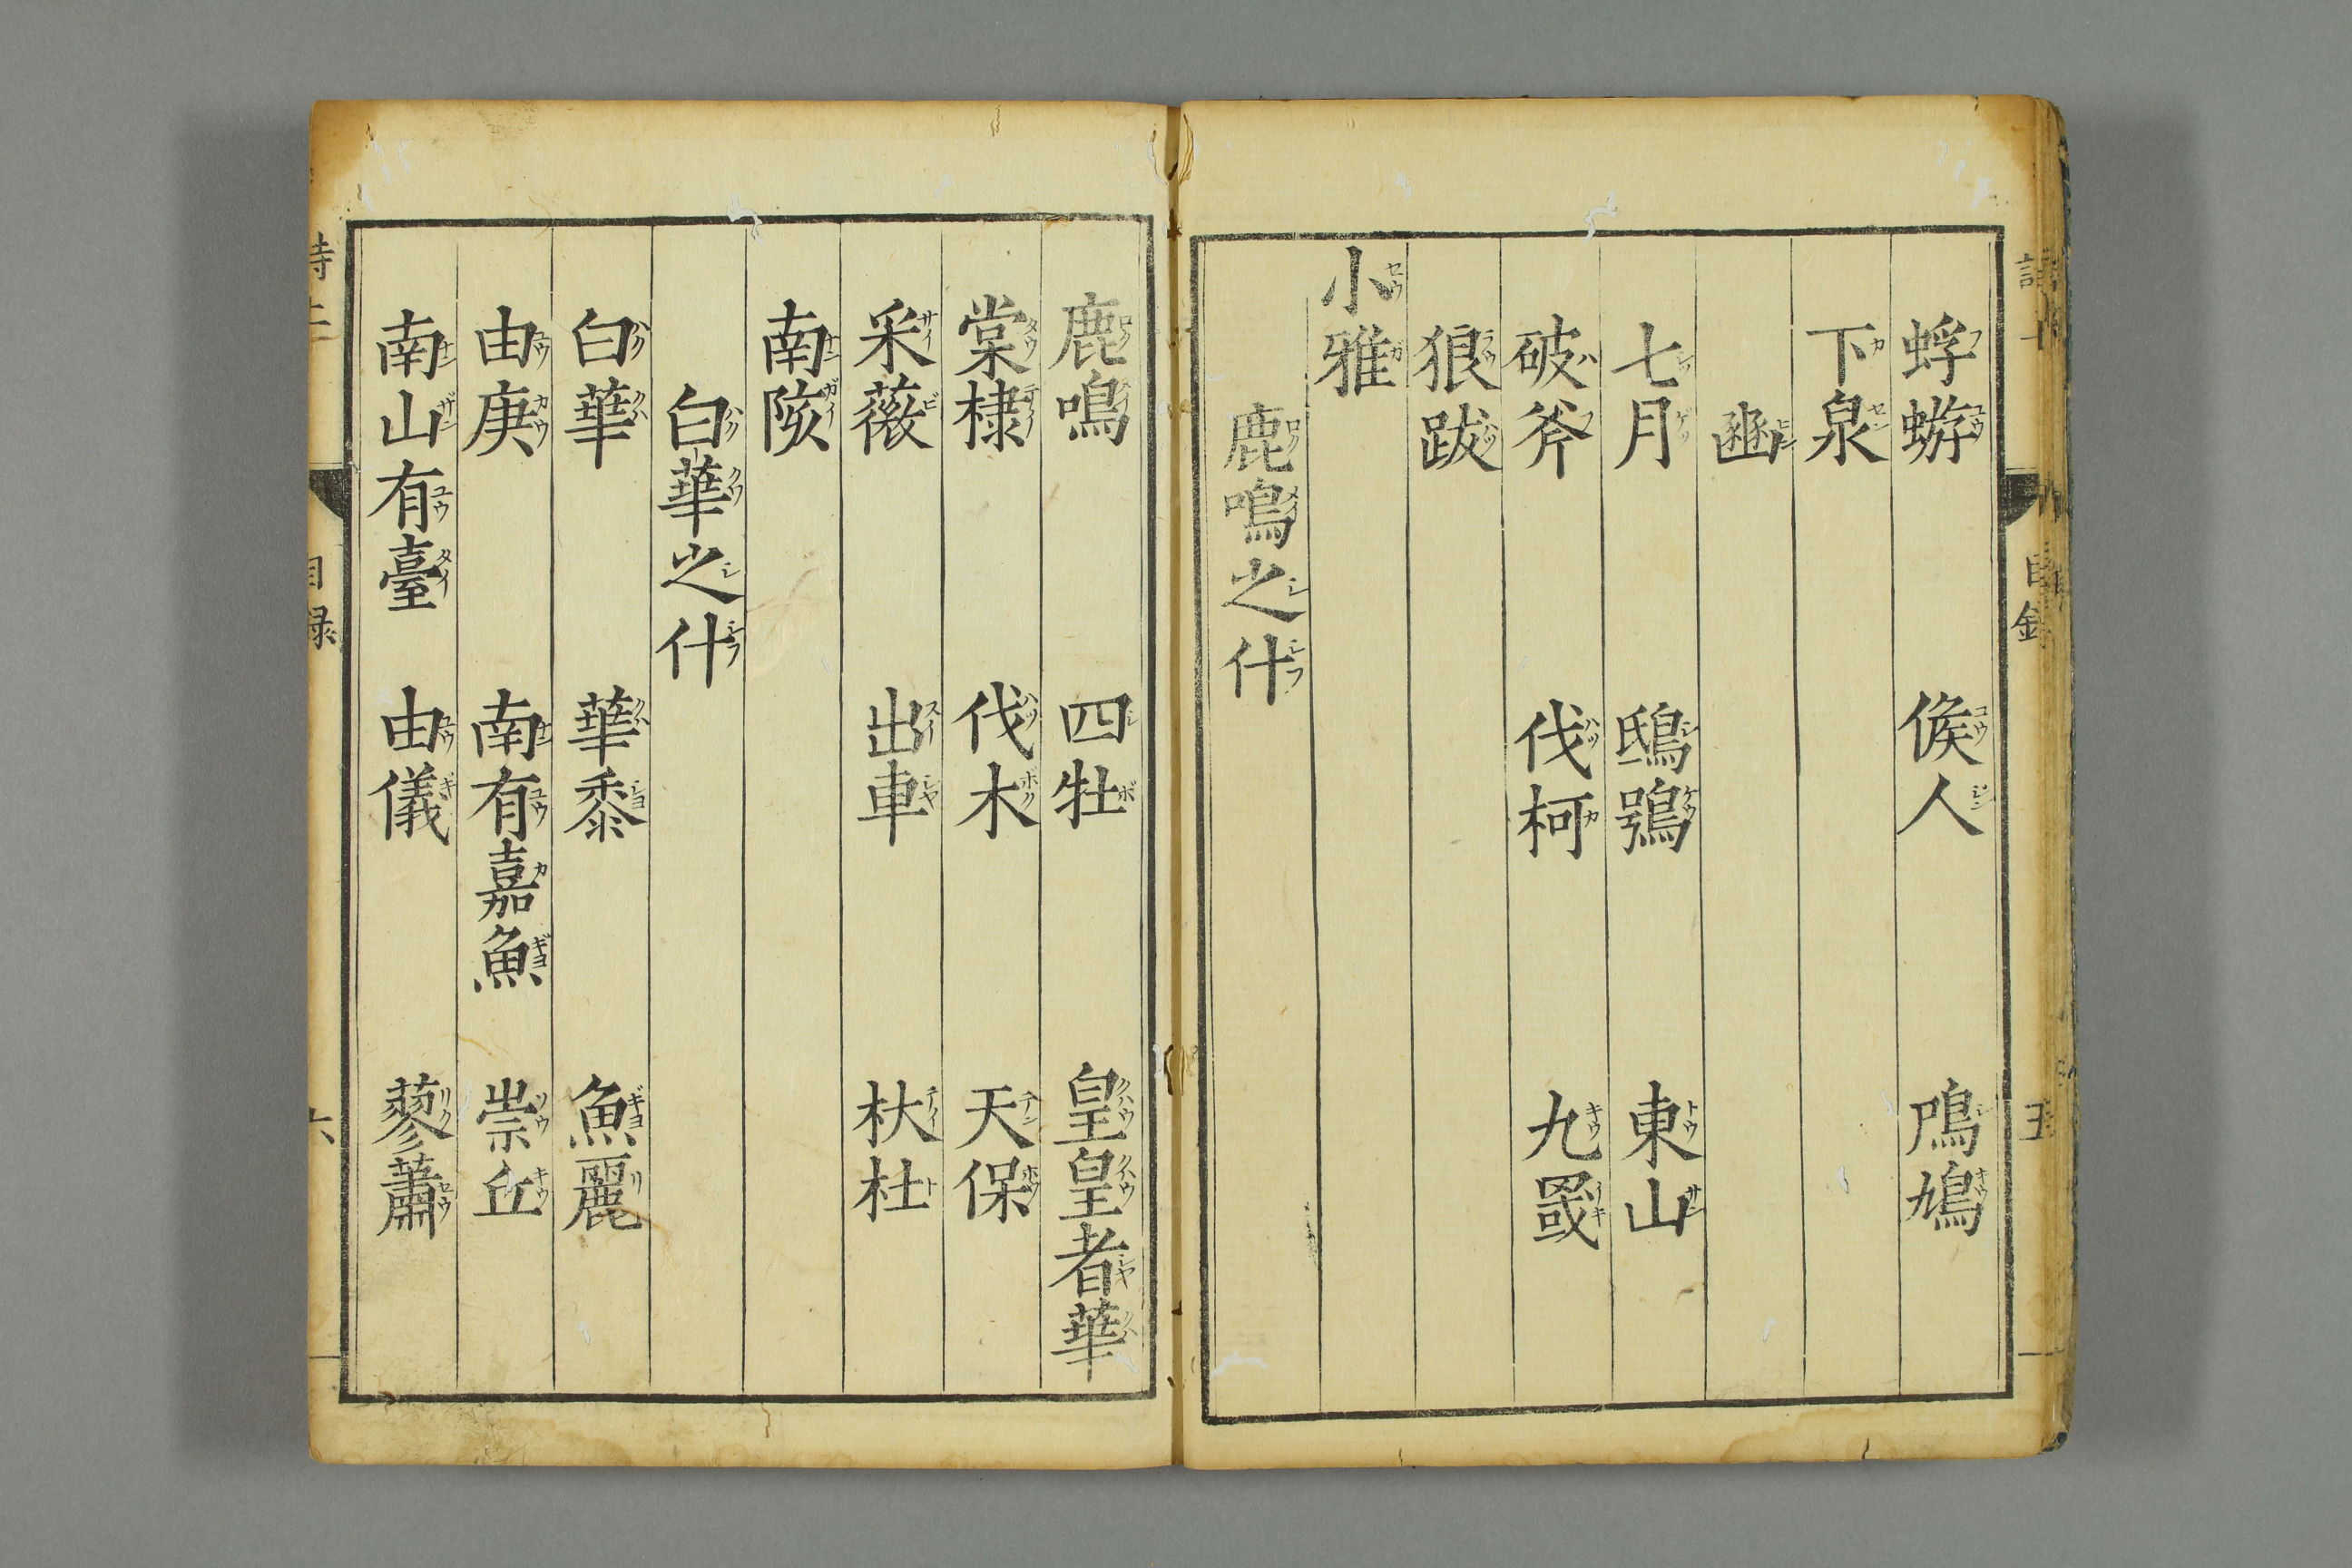 蜉蝣 候人 鳲鳩
下泉
豳
七月 鴟鴞 東山
破斧 伐柯 九罭
狼跋
小雅
鹿鳴之什
鹿鳴 四牡 皇皇者華
棠棣 伐木 天保
采薇 出車 杕杜
南陔
白華之什
白華 華黍 魚麗
由庚 南有嘉魚 崇丘
南山有臺 由儀 蓼蕭
目録 六